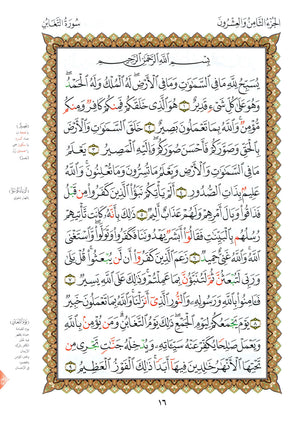 الجزء الثامن والعشرون
سورة التغابن
بِسْمِ اللَّهِ الرَّحْمَٰنِ الرَّحِيمِ
يُسَبِّحُ لِلَّهِ مَا فِي السَّمَٰوَٰتِ وَمَا فِي الْأَرْضِ لَهُ الْمُلْكُ وَلَهُ الْحَمْدُ
وَهُوَ عَلَىٰ كُلِّ شَيْءٍ قَدِيرٌ ١ هُوَ الَّذِي خَلَقَكُمْ فَمِنكُمْ كَافِرٌ وَمِنكُم
مُّؤْمِنٌ وَاللَّهُ بِمَا تَعْمَلُونَ بَصِيرٌ ٢ خَلَقَ السَّمَٰوَٰتِ وَالْأَرْضَ
بِالْحَقِّ وَصَوَّرَكُمْ فَأَحْسَنَ صُوَرَكُمْ وَإِلَيْهِ الْمَصِيرُ ٣ يَعْلَمُ
مَا فِي السَّمَٰوَٰتِ وَالْأَرْضِ وَيَعْلَمُ مَا تُسِرُّونَ وَمَا تُعْلِنُونَ وَاللَّهُ
عَلِيمٌ بِذَاتِ الصُّدُورِ ٤ أَلَمْ يَأْتِكُمْ نَبَؤُا الَّذِينَ كَفَرُوا مِن قَبْلُ
فَذَاقُوا وَبَالَ أَمْرِهِمْ وَلَهُمْ عَذَابٌ أَلِيمٌ ٥ ذَٰلِكَ بِأَنَّهُ كَانَت تَّأْتِيهِمْ
رُسُلُهُم بِالْبَيِّنَٰتِ فَقَالُوا أَبَشَرٌ يَهْدُونَنَا فَكَفَرُوا وَتَوَلَّوا وَّاسْتَغْنَى
اللَّهُ وَاللَّهُ غَنِيٌّ حَمِيدٌ ٦ زَعَمَ الَّذِينَ كَفَرُوا أَن لَّن يُبْعَثُوا قُلْ بَلَىٰ
وَرَبِّي لَتُبْعَثُنَّ ثُمَّ لَتُنَبَّؤُنَّ بِمَا عَمِلْتُمْ وَذَٰلِكَ عَلَى اللَّهِ يَسِيرٌ ٧
فَـَٔامِنُوا بِاللَّهِ وَرَسُولِهِ وَالنُّورِ الَّذِي أَنزَلْنَا وَاللَّهُ بِمَا تَعْمَلُونَ خَبِيرٌ
٨ يَوْمَ يَجْمَعُكُمْ لِيَوْمِ الْجَمْعِ ذَٰلِكَ يَوْمُ التَّغَابُنِ وَمَن يُؤْمِن بِاللَّهِ
وَيَعْمَلْ صَٰلِحًا يُكَفِّرْ عَنْهُ سَيِّـَٔاتِهِ وَيُدْخِلْهُ جَنَّٰتٍ تَجْرِي مِن
تَحْتِهَا الْأَنْهَٰرُ خَٰلِدِينَ فِيهَا أَبَدًا ذَٰلِكَ الْفَوْزُ الْعَظِيمُ ٩
١٦